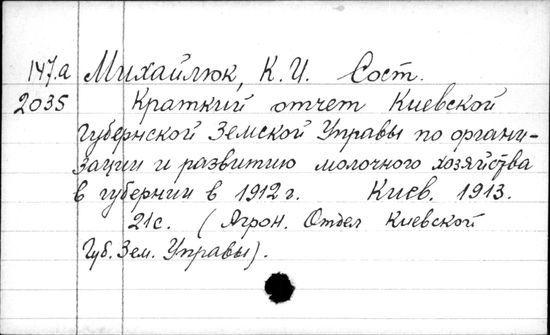 147.а Михайлюк, К.И. Сост.
2035 Краткий отчет Киевской
Губернской Земской Управы по органи-
зации и развитию молочного хозяйства
в губернии в 1912 г. Киев. 1913.
21с. (Агрон. Отдел Киевской
Губ. Зем. Управы).